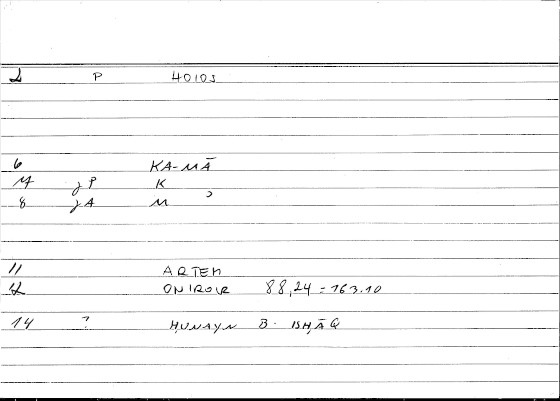 2 P 40103
6 KA-MĀ
M jP K
8 jA M ʾ
11 ARTEM
12 ONIROCR 88,24 = 163.10
14 ? ḤUNAYN B. ISḤĀQ